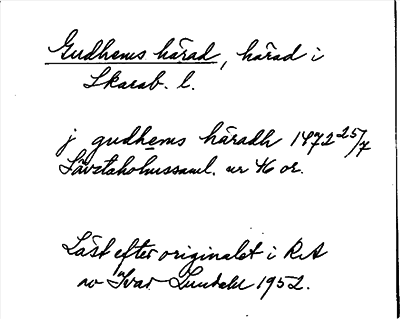 Gudhems härad, härad i
Skarab. l.
j gudhems häradh 1472 25/7
Sävstaholmssaml. nr 46 or.
Läst efter originalet i RA
av Ivar Lundahl 1952.